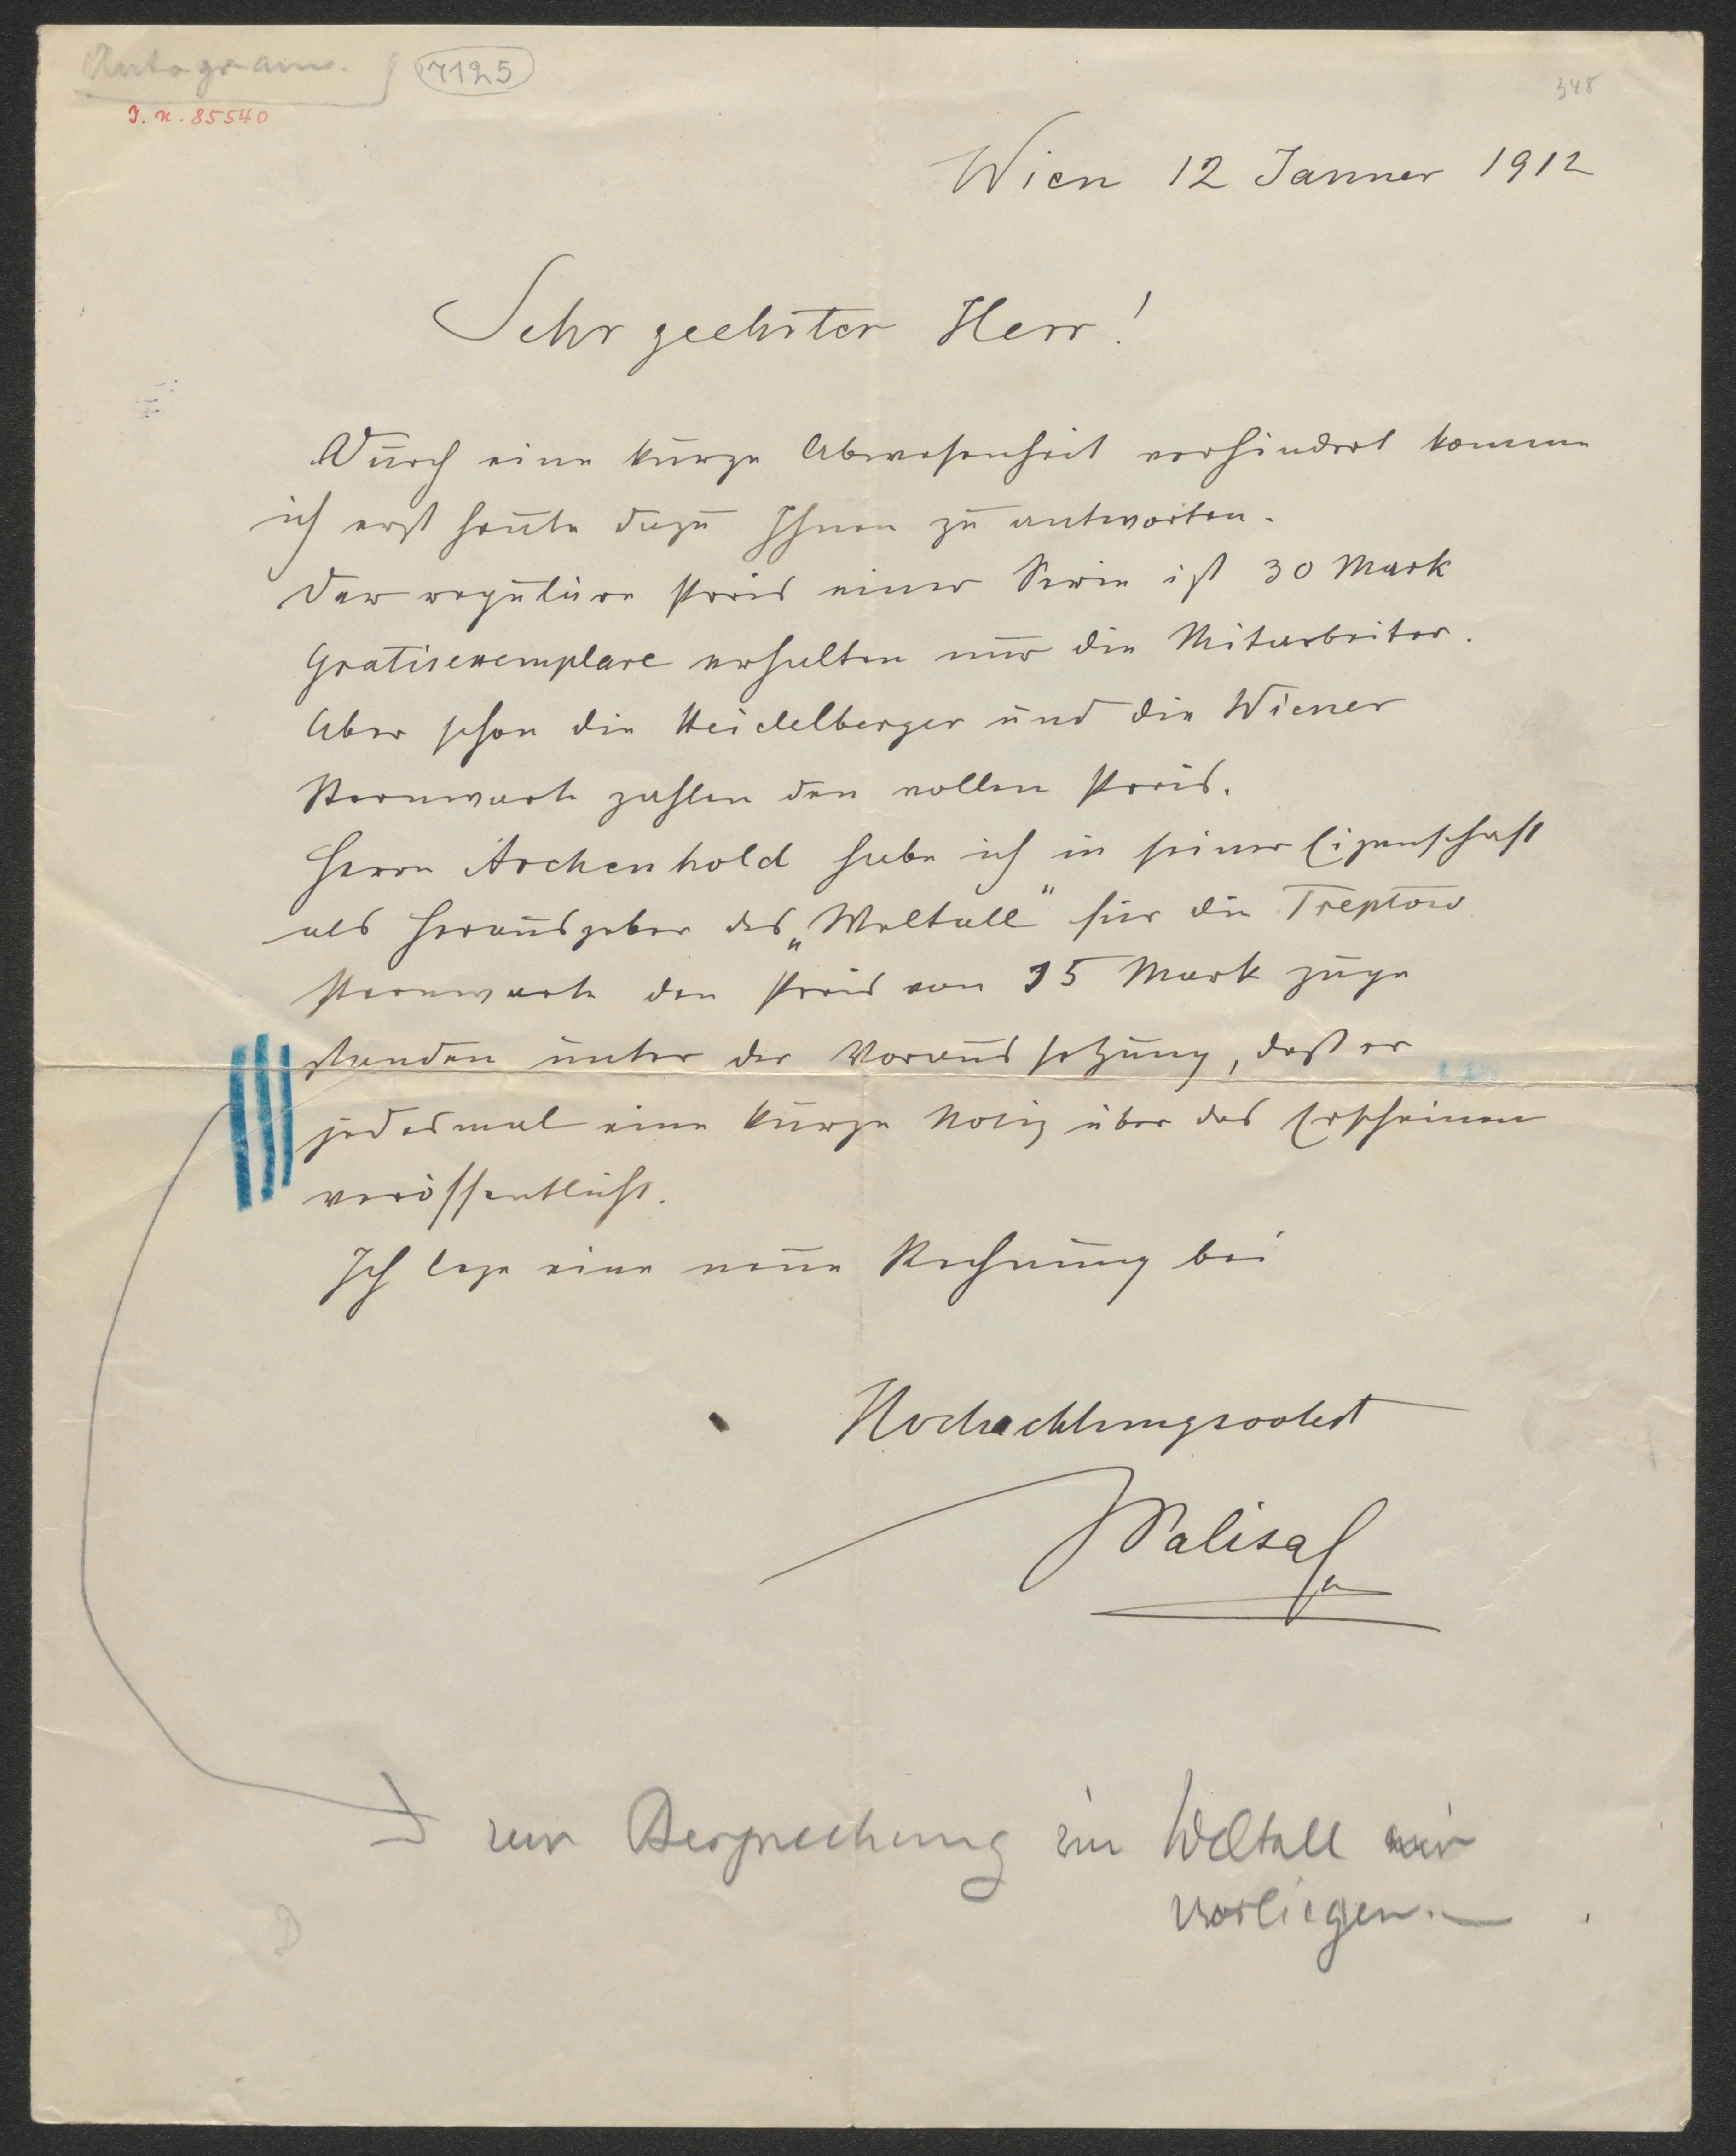 Autogramm.
7125
348
I. N. 85540
Wien 12 Janner 1912
Sehr geehrter Herr!
Durch eine kurze Abwesenheit verhindert komme
ich erst heute dazu Ihnen zu antworten.
Der reguläre Preis einer Serie ist 30 Mark
Gratisexemplare erhalten nur die Mitarbeiter.
Aber schon die Heidelberger und die Wiener
Sternwarte zahlen den vollen Preis.
Herrn Archenhold habe ich in seiner Eigenschaft
als Herausgeber des „Weltall“ für die Treptow
Sternwarte den Preis von 15 Mark zuge
standen unter der Voraussetzung, daß er
jedesmal eine kurze Notiz über das Erscheinen
veröffentlicht.
Ich lege eine neue Rechnung bei
Hochachtungsvollst
Palisa
zur Besprechung im Weltall
vorliegen.